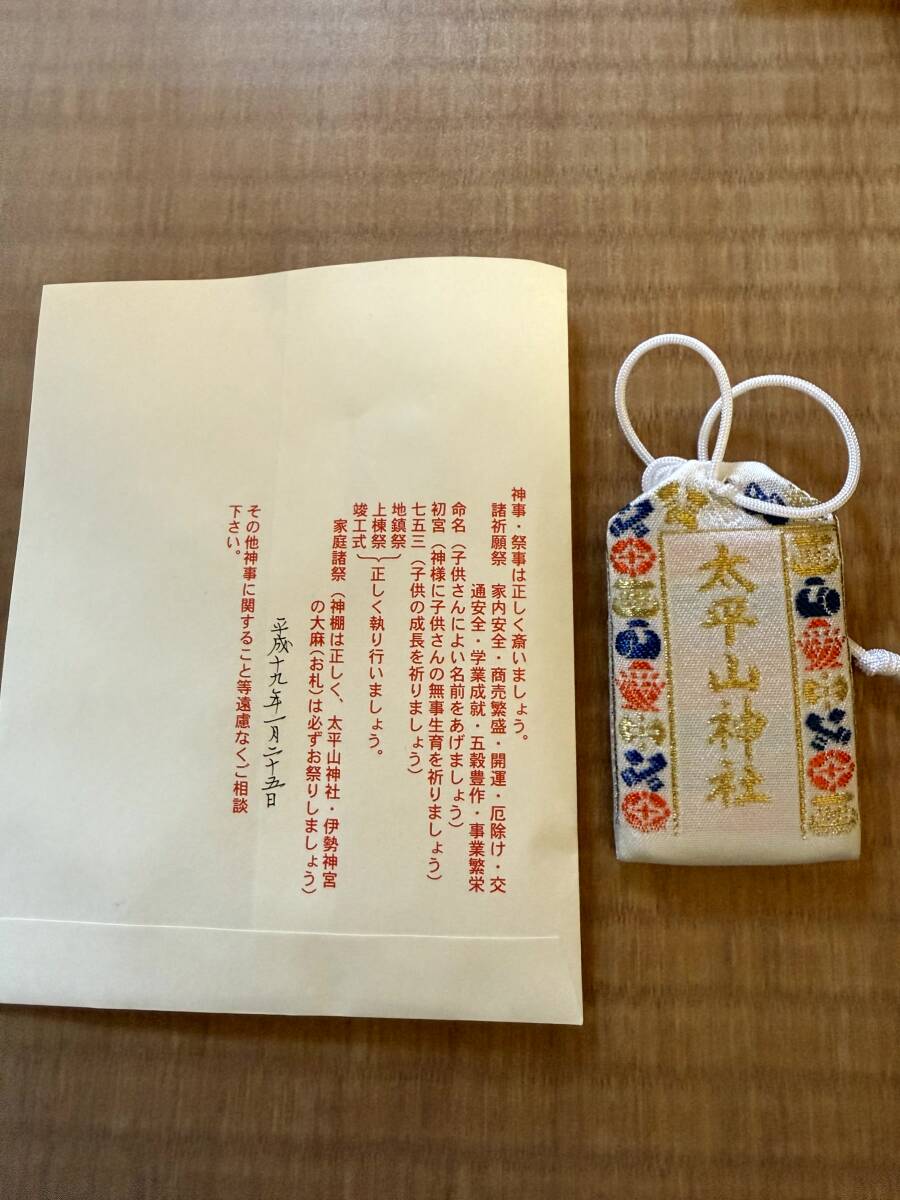 神事・祭事は正しく斎いましょう。
諸祈願祭 家内安全・商売繁盛・開運・厄除け・交
通安全・学業成就・五穀豊作・事業繁栄
命名（子供さんによい名前をあげましょう）
初宮（神様に子供さんの無事生育を祈りましょう）
七五三（子供の成長を祈りましょう）
地鎮祭
上棟祭
竣工式
正しく執り行いましょう。
家庭諸祭（神棚は正しく、太平山神社・伊勢神宮
の大麻（お札）は必ずお祭りしましょう）
平成十九年一月二十五日
その他神事に関すること等遠慮なくご相談
下さい。
太平山神社